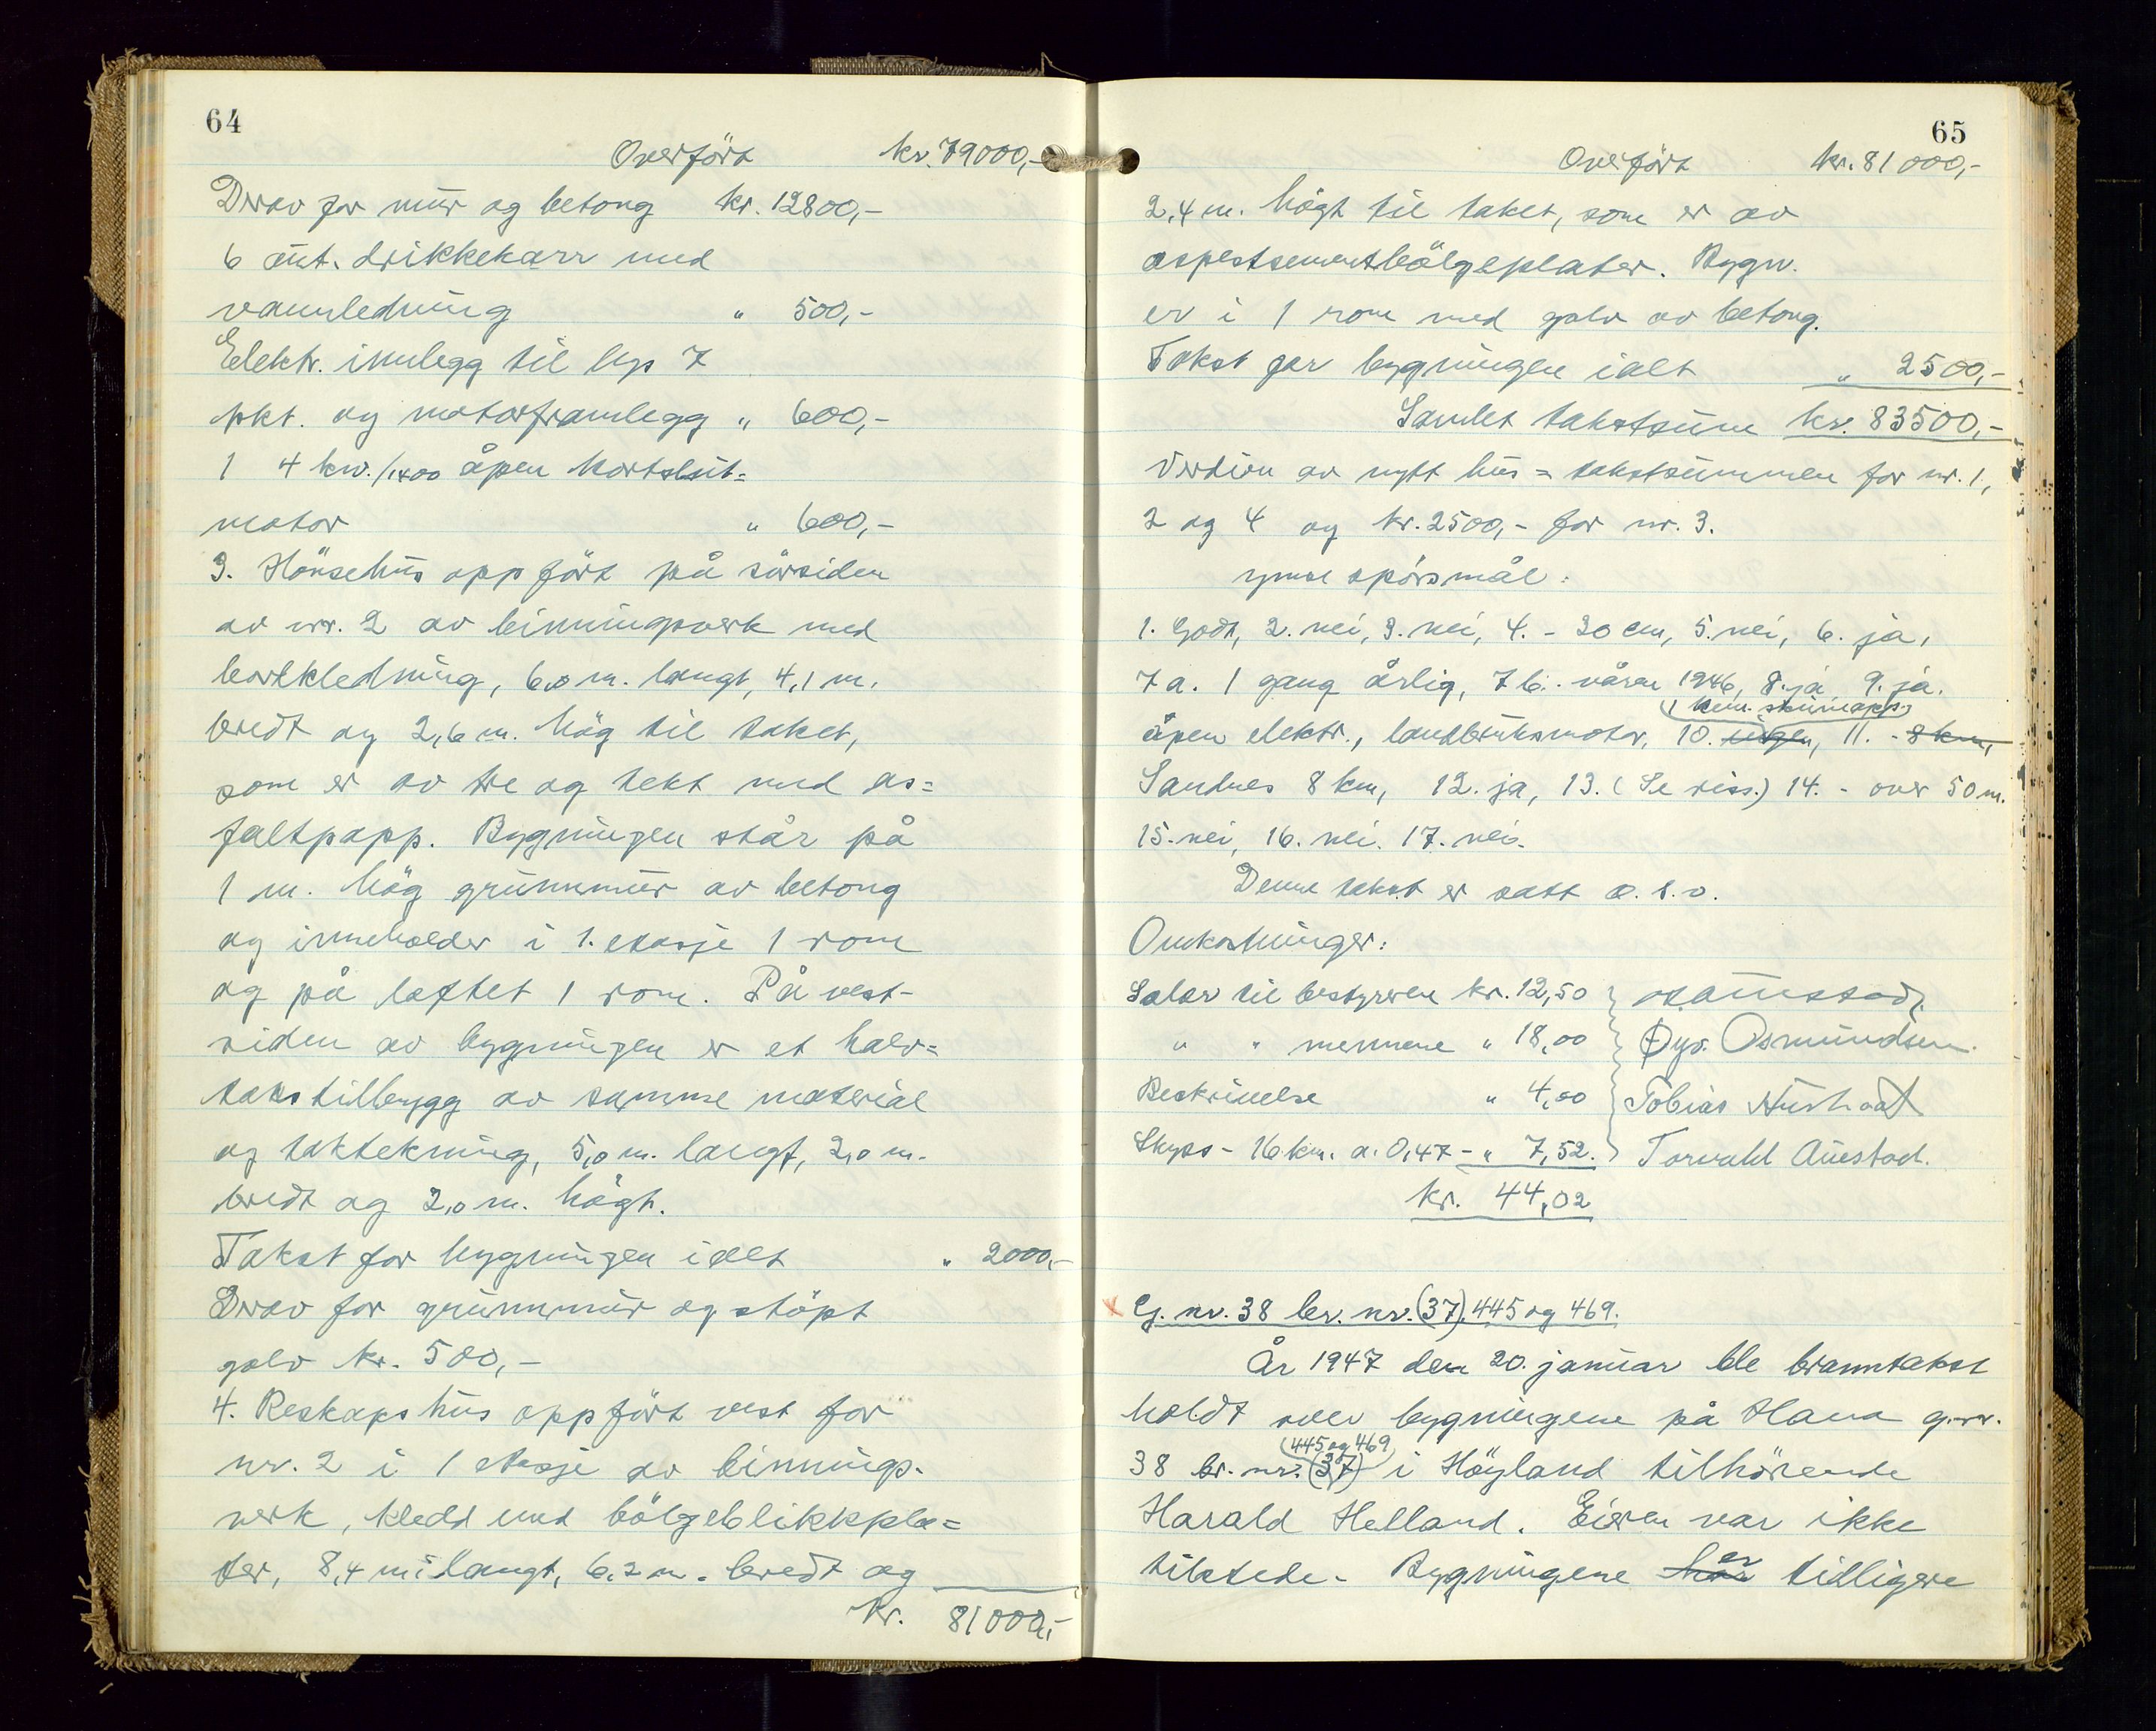 64
Overfört kr. 79000,-
Derav for mur og betong kr. 12800,-
6 aut. drikkekarr med
vannledning " 500,-
Elektr. innlegg til lys 7
pkt. og motorframlegg " 600,-
1 4 kw./1400 åpen kortslut=
motor " 600,-
3. Hönsehus oppfört på sörsiden
av nr. 2 av binningsverk med
bordkledning, 6,0 m. langt, 4,1 m.
bredt og 2,6 m. hög til taket,
som er av tre og tekt med as=
faltpapp. Bygningen står på
1 m. hög grunnmur av betong
og inneholder i 1. etasje 1 rom
og på loftet 1 rom. På vest-
siden av bygningen er et halv=
takstilbygg av samme material
og taktekning, 5,0 m. langt, 2,0 m.
bredt og 2,0 m. högt.
Takst for bygningen ialt " 2000,-
Derav for grunnmur og stöpt
golv kr. 500,-
4. Reskapshus oppfört vest for
nr. 2 i 1 etasje av binnings-
verk, kledd med bölgeblikkpla=
ter, 8,4 m. langt, 6,2 m. bredt og
kr. 81000,-
65
Overfört kr. 81000,-
2,4 m. högt til taket, som er av
aspestsementbölgeplater. Bygn.
er i 1 rom med golv av betong.
Takst for bygningen ialt " 2500,-
Samlet takstsum kr. 83500,-
Verdien av nytt hus = takstsummen for nr. 1,
2 og 4 og kr. 2500,- for nr. 3.
ymse spörsmål:
1. Godt, 2. nei, 3. nei, 4. - 30 cm, 5. nei, 6. ja,
7 a. 1 gang årlig, 7 b. - våren 1946, 8. ja, 9. ja.
(1 kem. skumapp.)
åpen elektr., landbruksmotor, 10. ingen, 11. - 8 km,
Sandnes 8 km, 12. ja, 13. (Se riss.) 14. - over 50 m.
15. nei, 16. nei. 17. nei.
Denne takst er satt o. s. v.
Omkostninger:
Salær til bestyreren kr. 12,50
" " mennene " 18,00 Øyv. Osmundsen.
Beskrivelse " 4,00 Tobias
Skyss - 16 km. a. 0,47 - " 7,52. Torvald Auestad.
kr. 44,02
G. nr. 38 br. nr. (37), 445 og 469.
År 1947 den 20. januar ble branntakst
holdt over bygningene på Hana g. nr.
(445 og 469)
38 br. nr. (37) i Höyland tilhörende
Harald Helland. Eieren var ikke
er
tilstede. Bygningene har tidligere